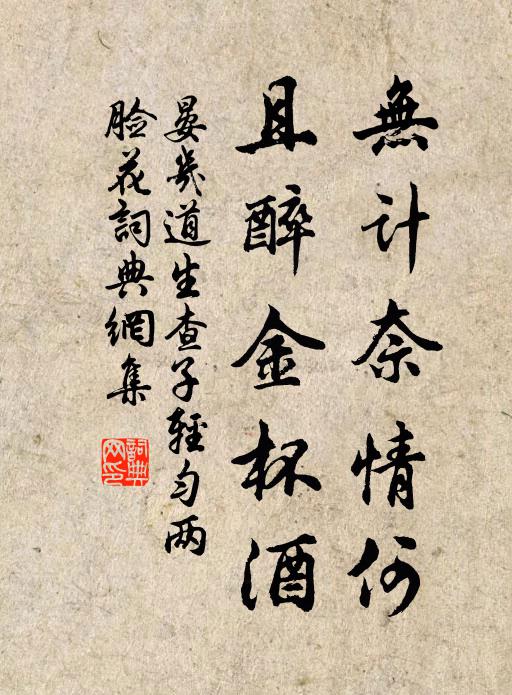 無计奈情何
且醉金杯酒
晏幾道生查子輕勻两
脸花詞典網集
詞典网印